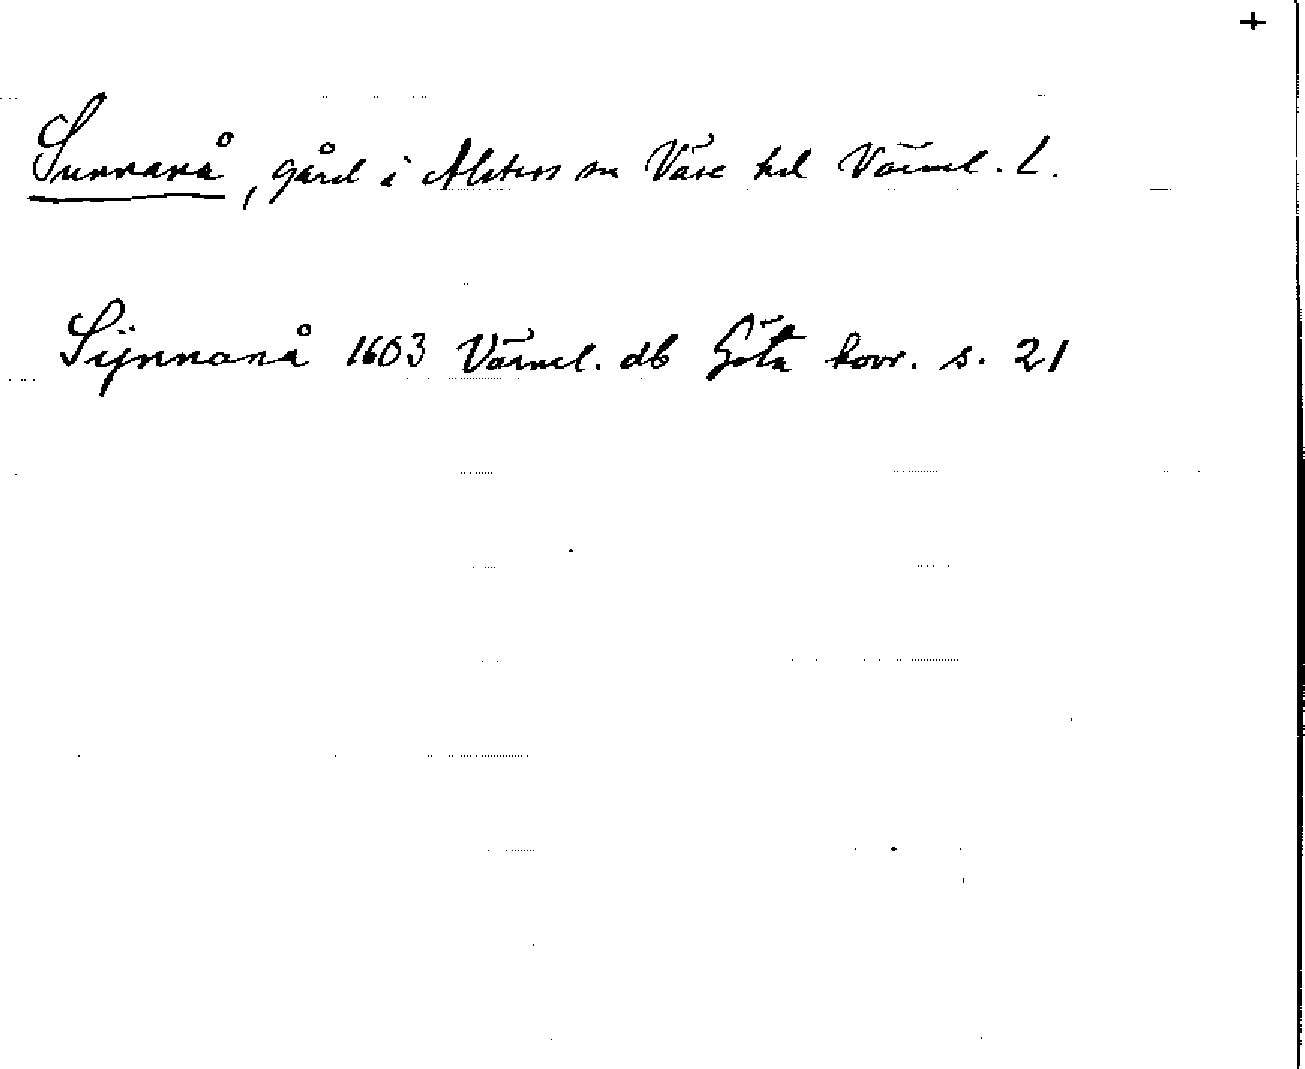 +
Sunnanå, gård i Alsters sn Väse hd Värml. L.
Sÿnnanå 1603 Värml. db Göta hovr. s. 21